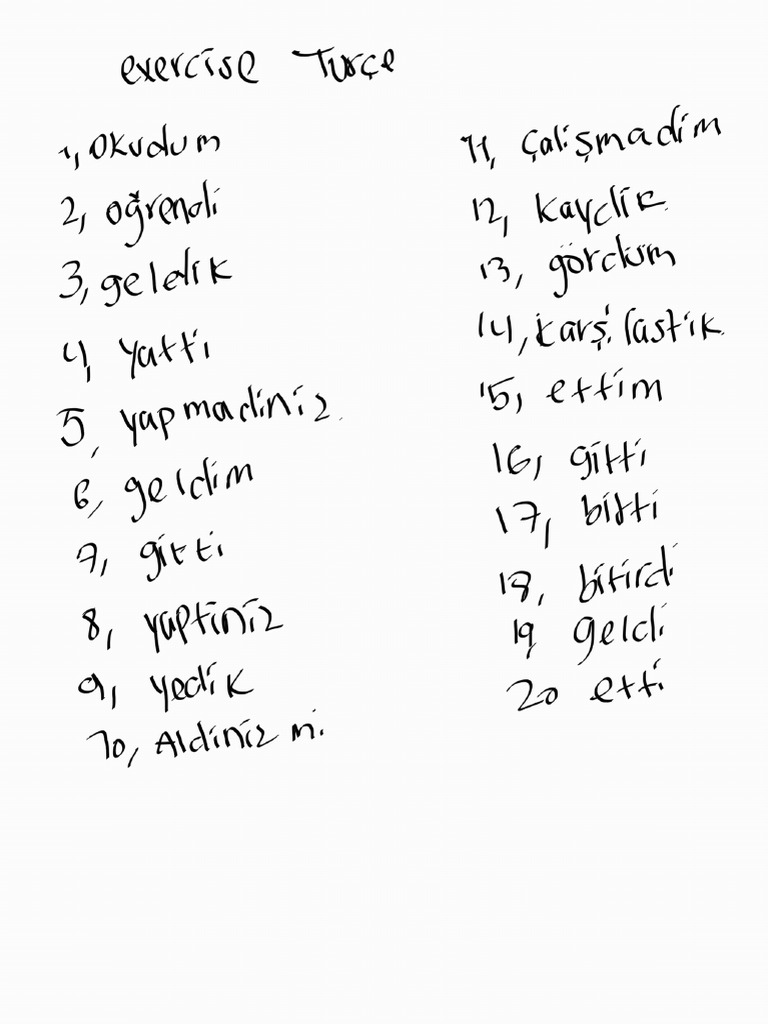 exercise Turçe
1, Okudum
2, oğrendi
3, geldik
4, yatti
5, yapmadiniz.
6, geldim
7, gitti
8, yaptiniz
9, yedik
10, Aldiniz mi
11, Çalişmadim
12, kaydik
13, gördüm
14, karşilastik
15, ettim
16, gitti
17, bitti
18, bitirdi
19 geldi
20 etti